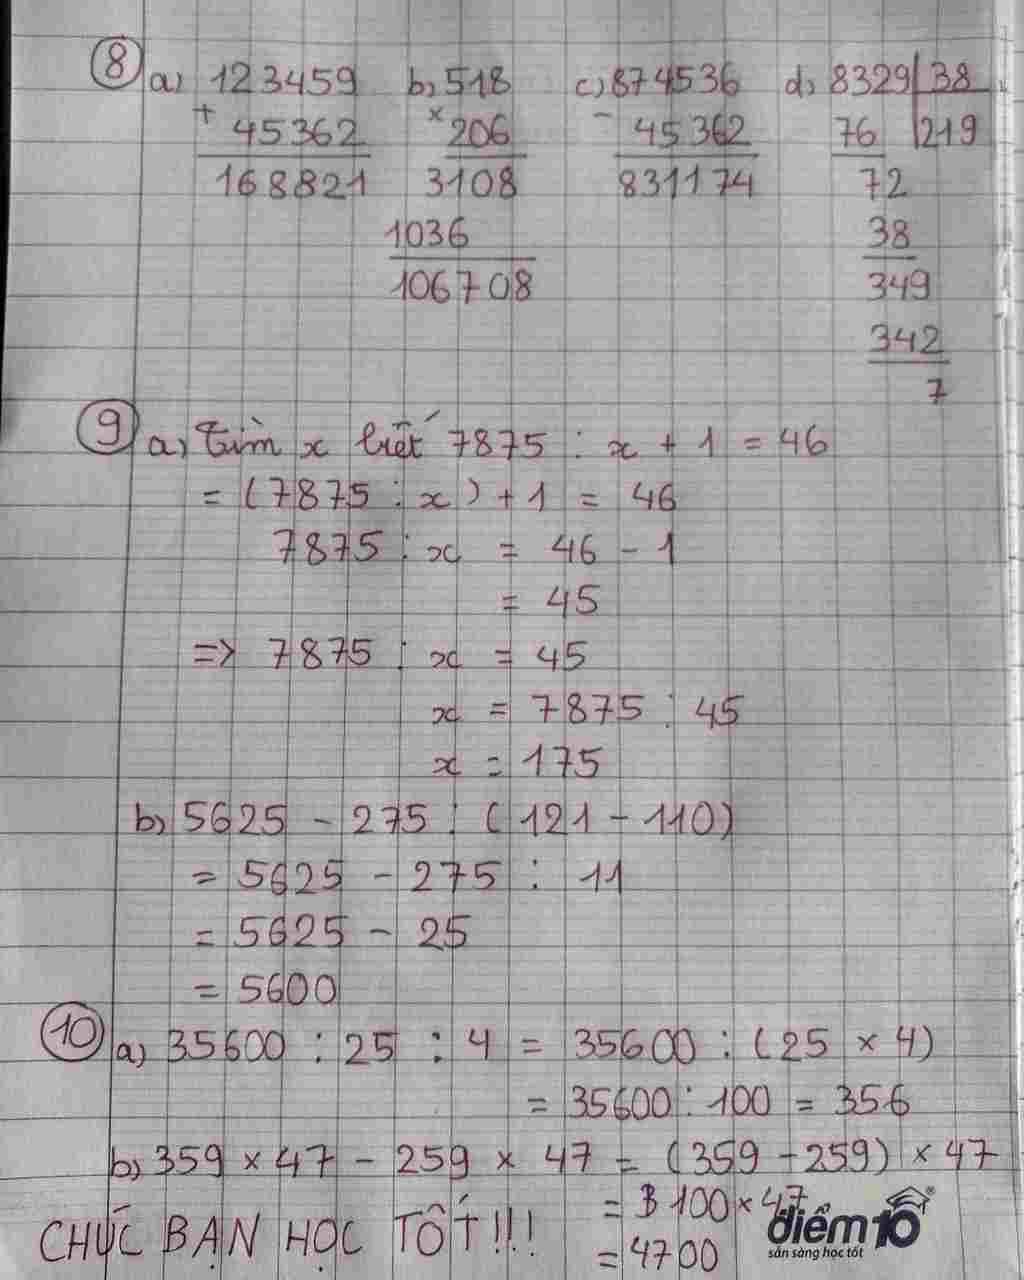 8 a) 123459 b) 518 c) 874536 d) 8329 38
+ 45362 × 206 - 45362 76 219
168821 3108 831174 72
1036 38
106708 349
342
7
9 a) Tìm x biết 7875 : x + 1 = 46
= (7875 : x) + 1 = 46
7875 : x = 46 - 1
= 45
=> 7875 : x = 45
x = 7875 : 45
x = 175
b) 5625 - 275 : (121 - 110)
= 5625 - 275 : 11
= 5625 - 25
= 5600
10 a) 35600 : 25 : 4 = 35600 : (25 × 4)
= 35600 : 100 = 356
b) 359 × 47 - 259 × 47 = (359 - 259) × 47
= 100 × 47
= 4700
CHÚC BẠN HỌC TỐT!!!
điểm10
sẵn sàng học tốt